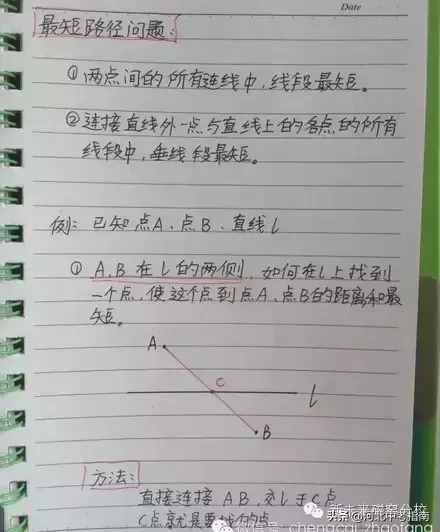 Date
最短路径问题:
①两点间的所有连线中,线段最短。
②连接直线外一点与直线上的各点的所有
线段中,垂线段最短。
例:已知点A、点B、直线l
①A、B在l的两侧,如何在l上找到
一个点,使这个点到点A、点B的距离和最
短。
A
C
l
B
方法:
直接连接AB,交l于C点
C点就是要找的点
头条@河北中考指南
微信号: chengcai_zhaofang